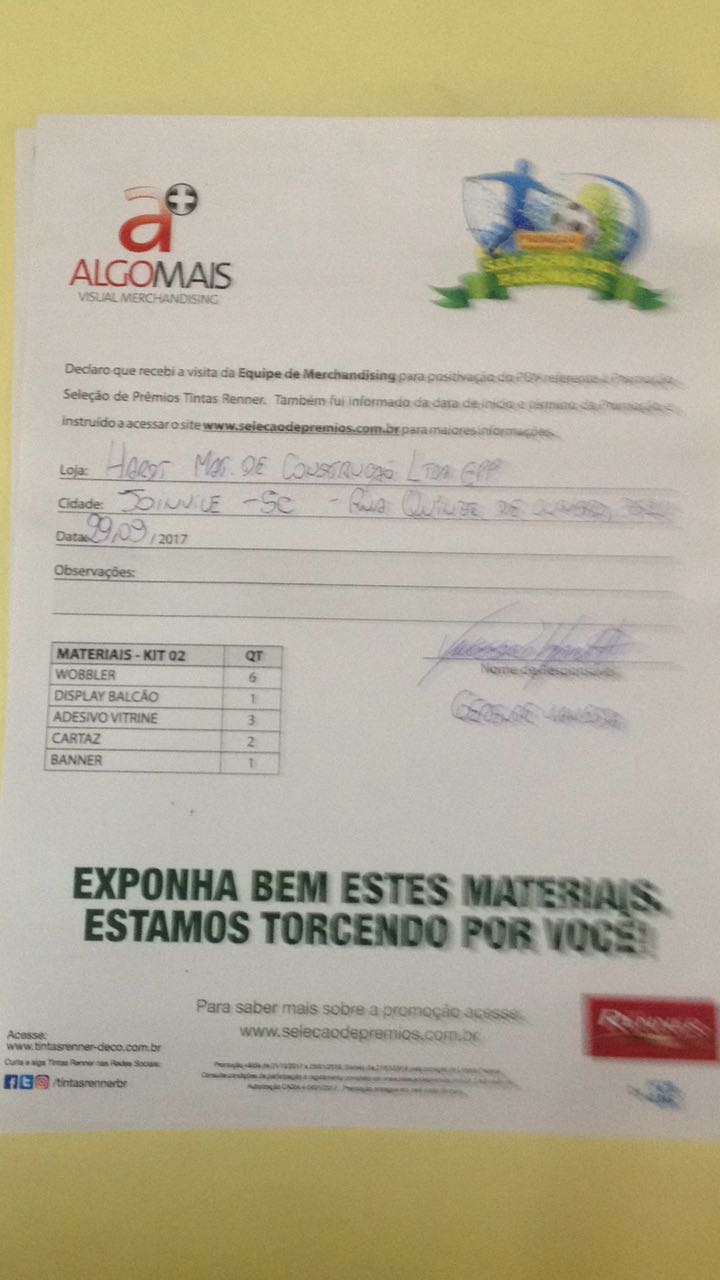 a+
ALGOMAIS
VISUAL MERCHANDISING
Declaro que recebi a visita da Equipe de Merchandising para positivação do PDV referente a Promoção
Seleção de Prêmios Tintas Renner. Também fui informado da data de início e término da Promoção e
instruído a acessar o site www.selecaodepremios.com.br para maiores informações.
Loja: HARDT MAT. DE CONSTRUÇÃO LTDA EPP
Cidade: JOINVILE - SC - RUA QUINZE DE
Data: 29/09 / 2017
Observações:
MATERIAIS - KIT 02 QT
WOBBLER 6
DISPLAY BALCÃO 1
ADESIVO VITRINE 3
CARTAZ 2
BANNER 1
Nome do Responsável
GERENTE
EXPONHA BEM ESTES MATERIAIS.
ESTAMOS TORCENDO POR VOCÊ!
Para saber mais sobre a promoção acesse:
www.selecaodepremios.com.br
RENNER
Acesse:
www.tintasrenner-deco.com.br
Curta e siga Tintas Renner nas Redes Sociais:
/tintasrennerbr